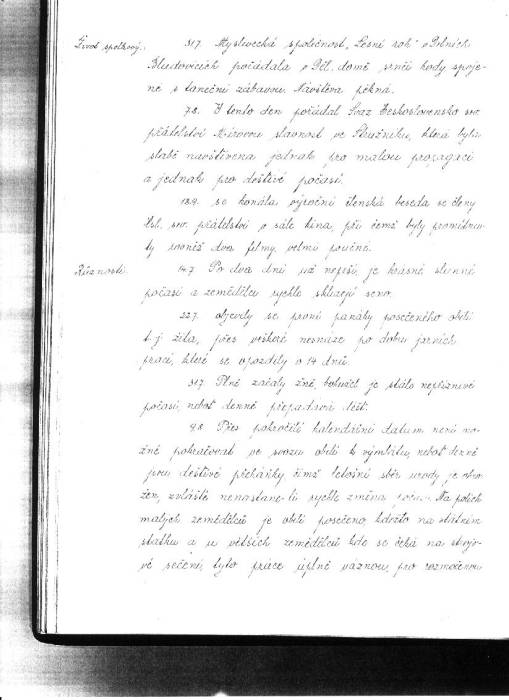 Život spolkový. 31.7. Myslivecká společnost „Lesní roh" v Dolních
Bludovicích pořádala v Děl. domě srnčí hody spoje-
né s taneční zábavou. Návštěva pěkná.
7.8. I tento den pořádal Svaz Československo sov.
přátelství Mírovou slavnost ve Stružníku, která byla
slabě navštívena jednak pro malou propagaci
a jednak pro deštivé počasí.
18.9. se konala výroční členská beseda se členy
čsl. sov. přátelství v sále kina, při čemž byly promítnu-
ty rovněž dva filmy, velmi poučné.
Různosti. 14.7. Po dva dni už neprší, je krásné slunné
počasí a zemědělci rychle sklízejí seno.
22.7. objevily se první panáky posečeného obilí
t. j. žita, přes veškeré nesnáze po dobu jarních
prací, které se opozdily o 14 dnů.
31.7. Plně začaly žně, bohužel je stálo nepříznivé
počasí, neboť denně přepadává déšť.
9.8. Přes pokročilé kalendářní datum není mo-
žné pokračovat ve svozu obilí k výmlatu, neboť denně
jsou deštivé přeháňky čímž letošní sběr úrody je ohro-
žen, zvláště nenastane-li rychle změna počasí. Na polích
malých zemědělců je obilí posečeno kdežto na státním
statku a u větších zemědělců kde se čeká na strojo-
vé sečení, tyto práce úplně váznou, pro rozmočenou